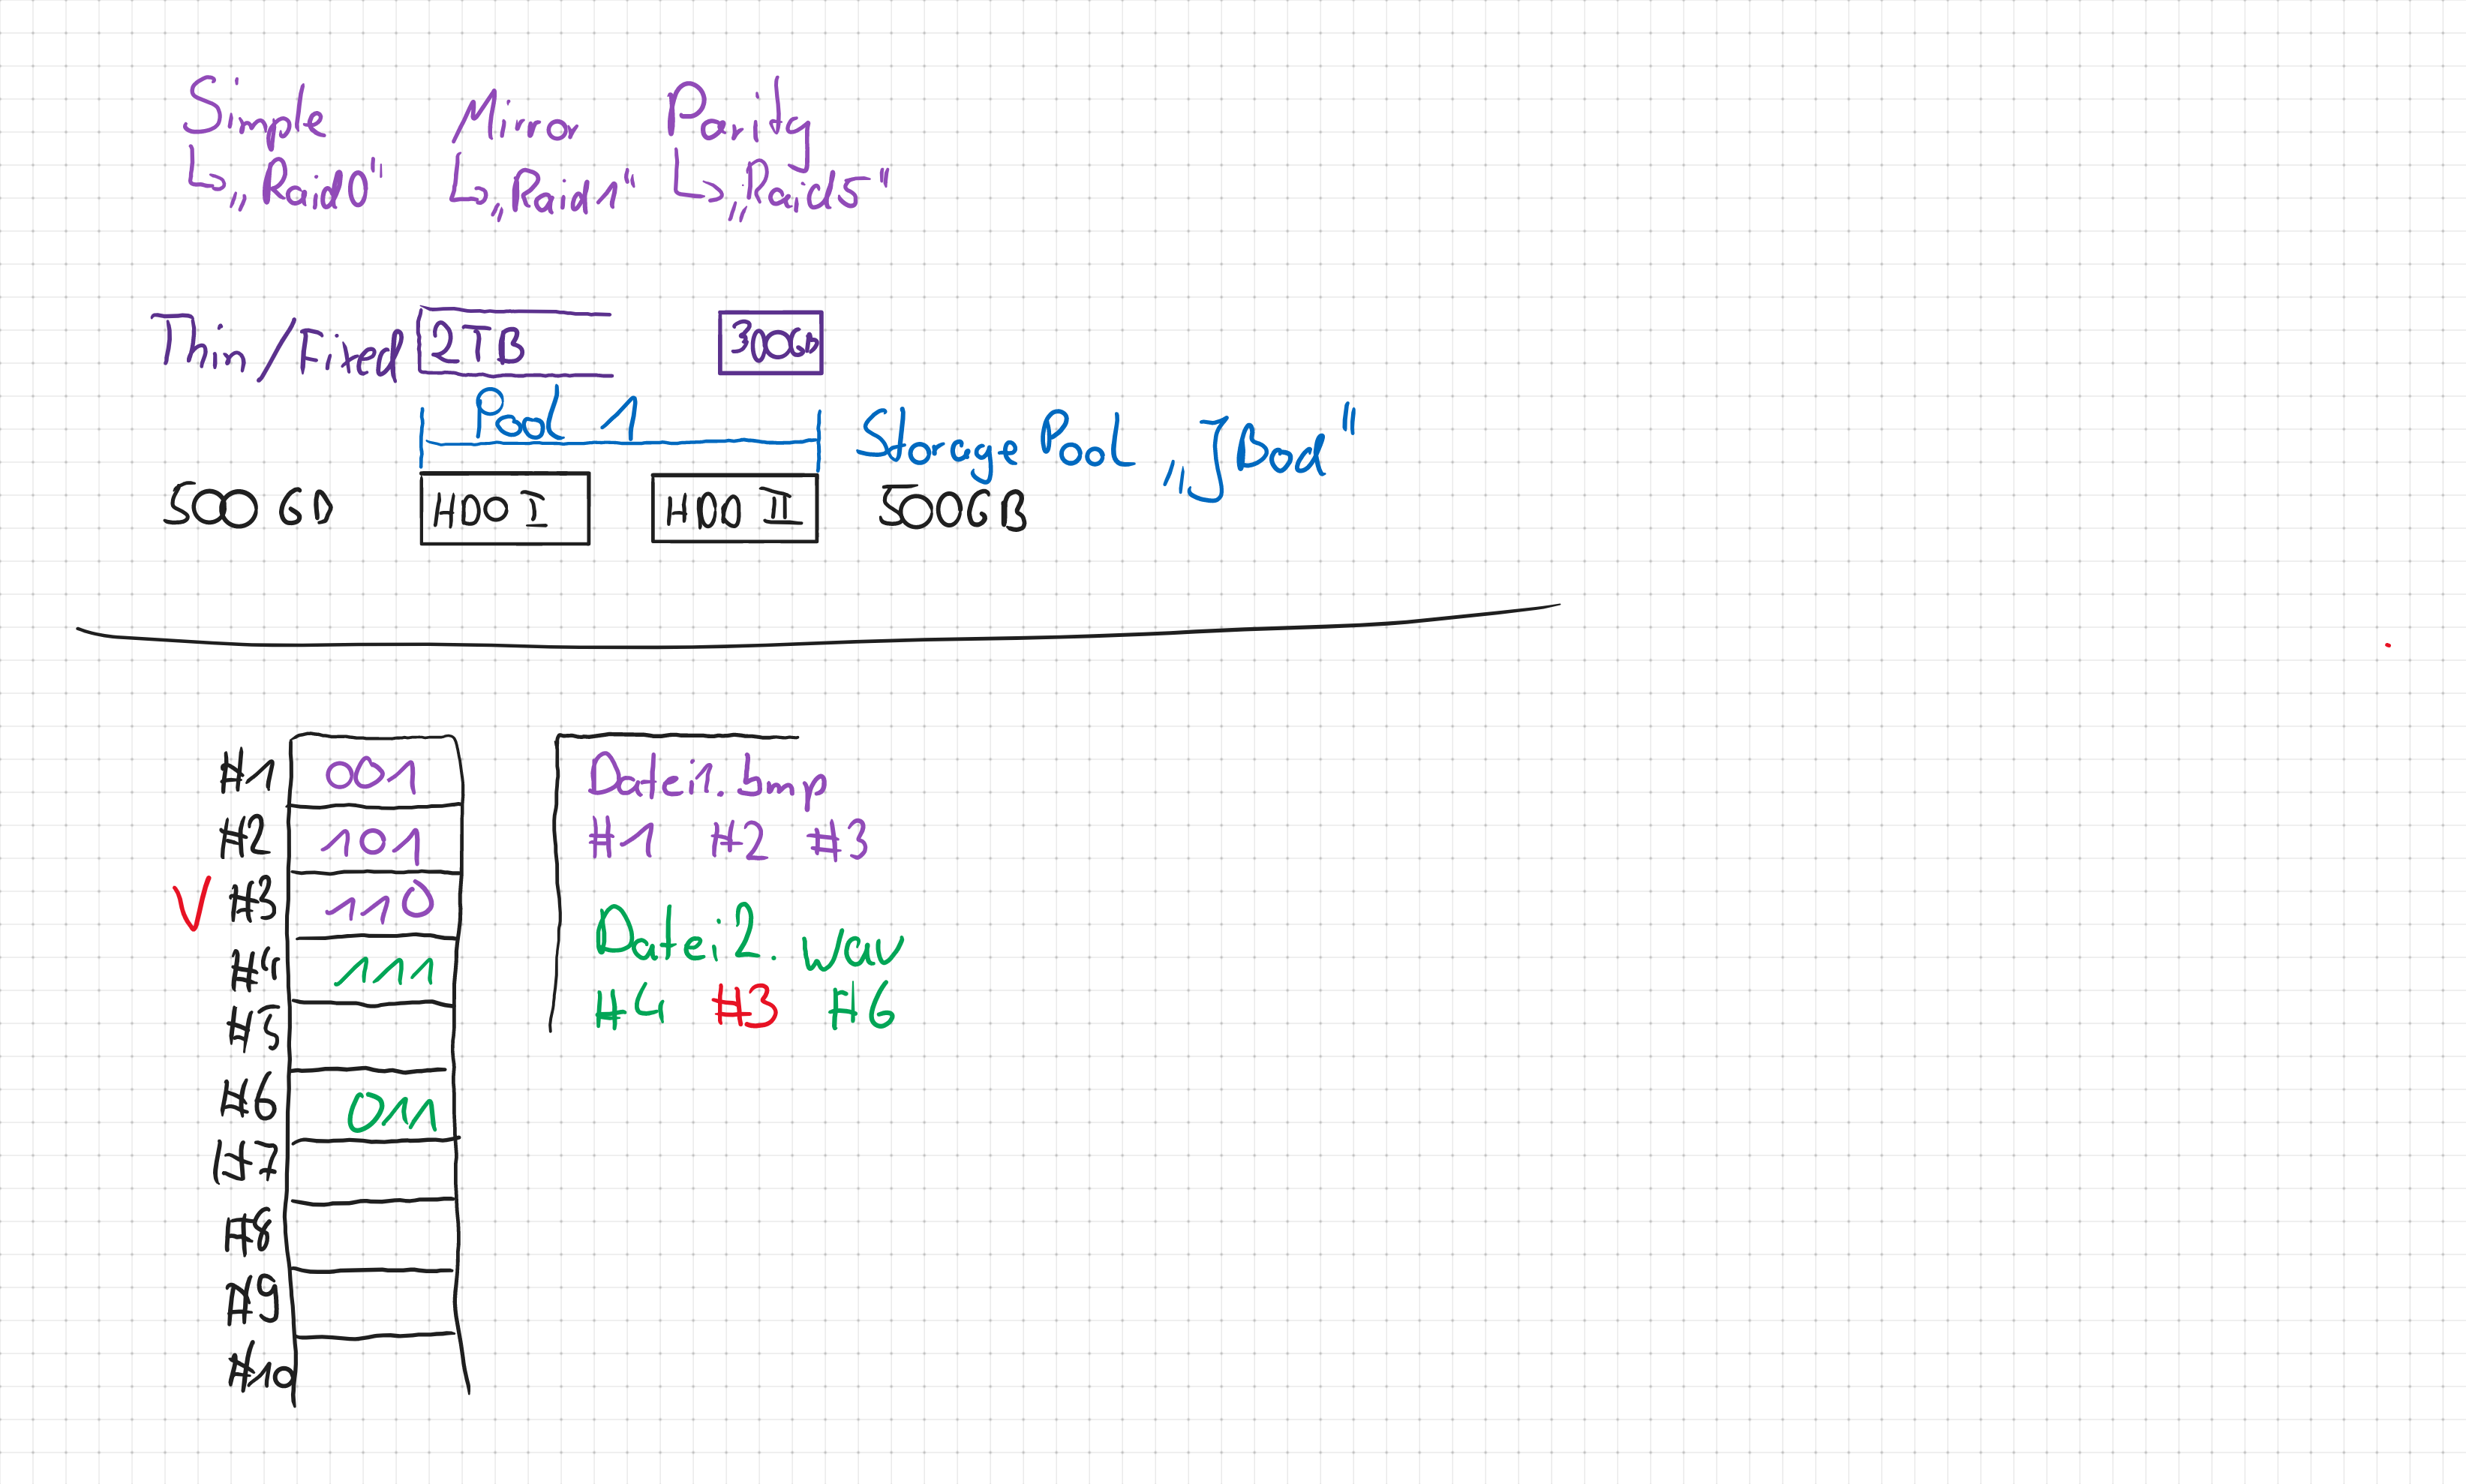 Simple Mirror Parity
↳ „Raid0" ↳ „Raid1" ↳ „Raid5"
Thin/Fixed 2TB 300GB
Pool 1
Storage Pool „JBod"
500 GB HDD I HDD II 500GB
#1 001
#2 101
V #3 110
#4 111
#5
#6 011
#7
#8
#9
#10
Datei1.bmp
#1 #2 #3
Datei2.wav
#4 #3 #6